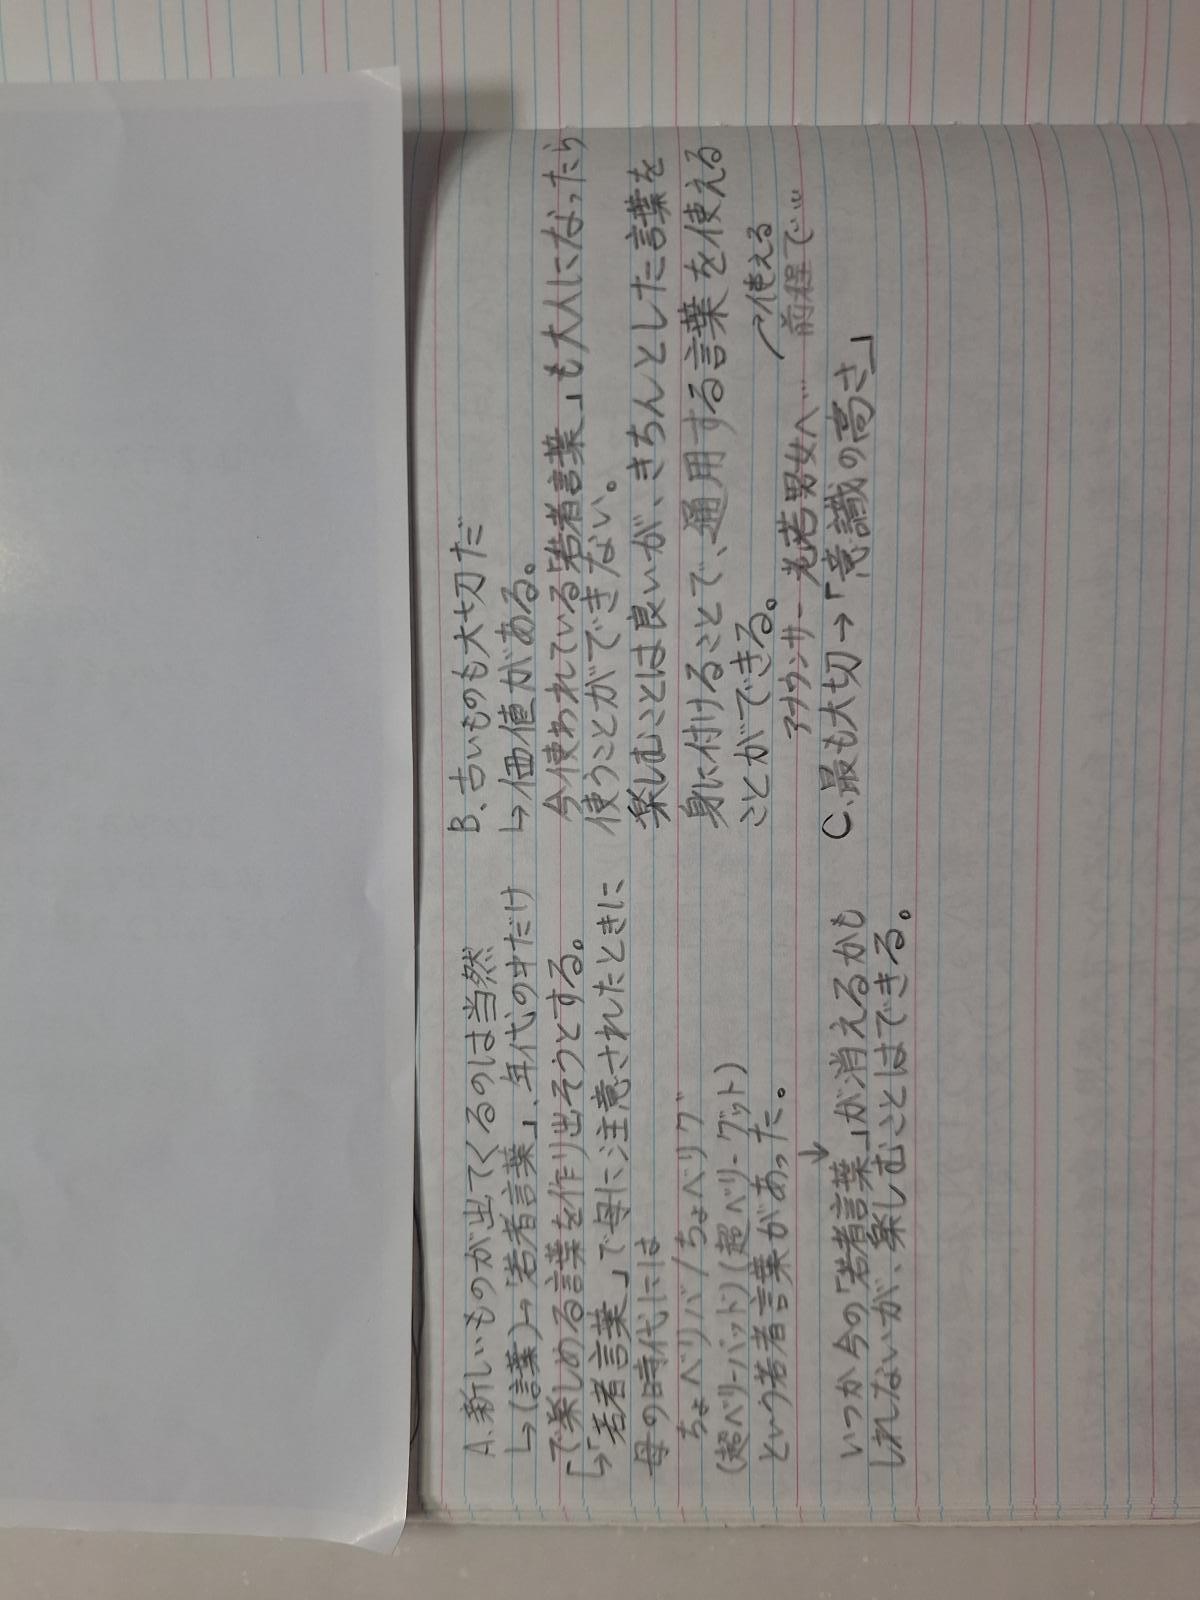 A.新しいものが出てくるのは当然
↳(言葉)→「若者言葉」、年代の中だけ
で楽しめる言葉を作り出そうとする。
↳「若者言葉」で母に注意されたときに
母の時代には
ちょべリバ/ちょベリグ
(超ベリーバット)(超ベリーグット)
という若者言葉があった。
↓
いつか今の「若者言葉」が消えるかも
しれないが、楽しむことはできる。
B.古いものも大切だ
↳価値がある。
今使われている「若者言葉」も大人になったら
使うことができない。
楽しむことは良いが、きちんとした言葉を
身に付けることで、通用する言葉を使える
ことができる。
↗使える
アナウンサー 老若男女へ… 前程で…
C.最も大切→「意識の高さ」